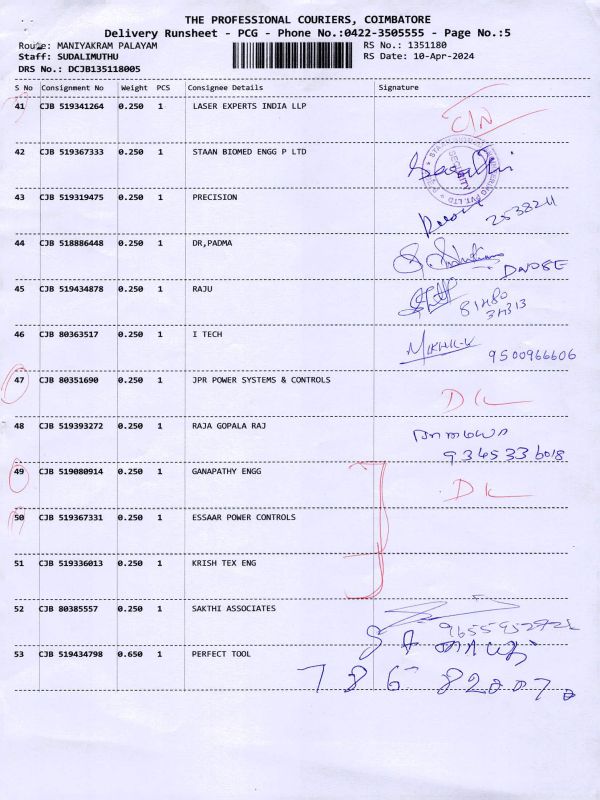 THE PROFESSIONAL COURIERS, COIMBATORE
Delivery Runsheet - PCG - Phone No.:0422-3505555 - Page No.:5
Route: MANIYAKRAM PALAYAM RS No.: 1351180
Staff: SUDALIMUTHU RS Date: 10-Apr-2024
DRS No.: DCJB135118005
S No Consignment No Weight PCS Consignee Details Signature
41 CJB 519341264 0.250 1 LASER EXPERTS INDIA LLP C/N
42 CJB 519367333 0.250 1 STAAN BIOMED ENGG P LTD
43 CJB 519319475 0.250 1 PRECISION
44 CJB 518886448 0.250 1 DR,PADMA
45 CJB 519434878 0.250 1 RAJU
46 CJB 80363517 0.250 1 I TECH 9500966606
47 CJB 80351690 0.250 1 JPR POWER SYSTEMS & CONTROLS DL
48 CJB 519393272 0.250 1 RAJA GOPALA RAJ
9345336018
49 CJB 519080914 0.250 1 GANAPATHY ENGG DL
50 CJB 519367331 0.250 1 ESSAAR POWER CONTROLS
51 CJB 519336013 0.250 1 KRISH TEX ENG
52 CJB 80385557 0.250 1 SAKTHI ASSOCIATES
53 CJB 519434798 0.650 1 PERFECT TOOL